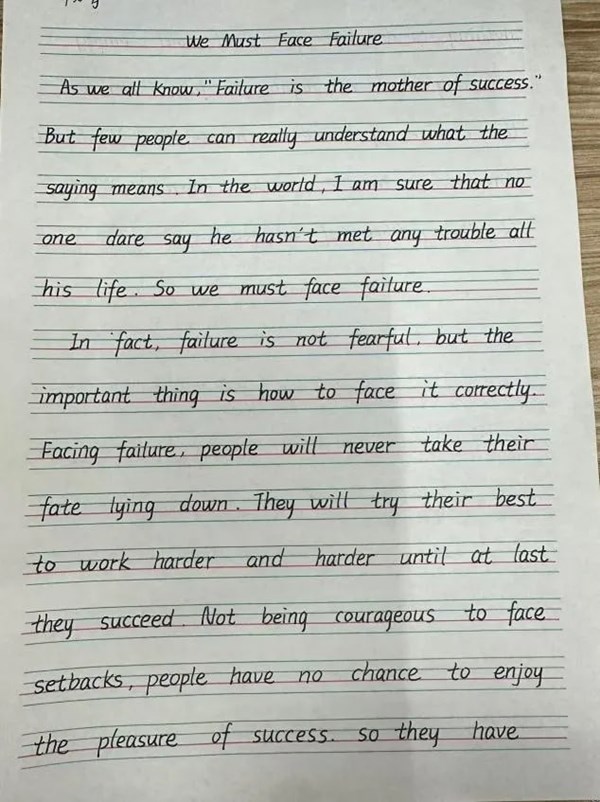 We Must Face Failure
As we all know, "Failure is the mother of success."
But few people can really understand what the
saying means. In the world, I am sure that no
one dare say he hasn't met any trouble all
his life. So we must face failure.
In fact, failure is not fearful, but the
important thing is how to face it correctly.
Facing failure, people will never take their
fate lying down. They will try their best
to work harder and harder until at last
they succeed. Not being courageous to face
setbacks, people have no chance to enjoy
the pleasure of success. so they have